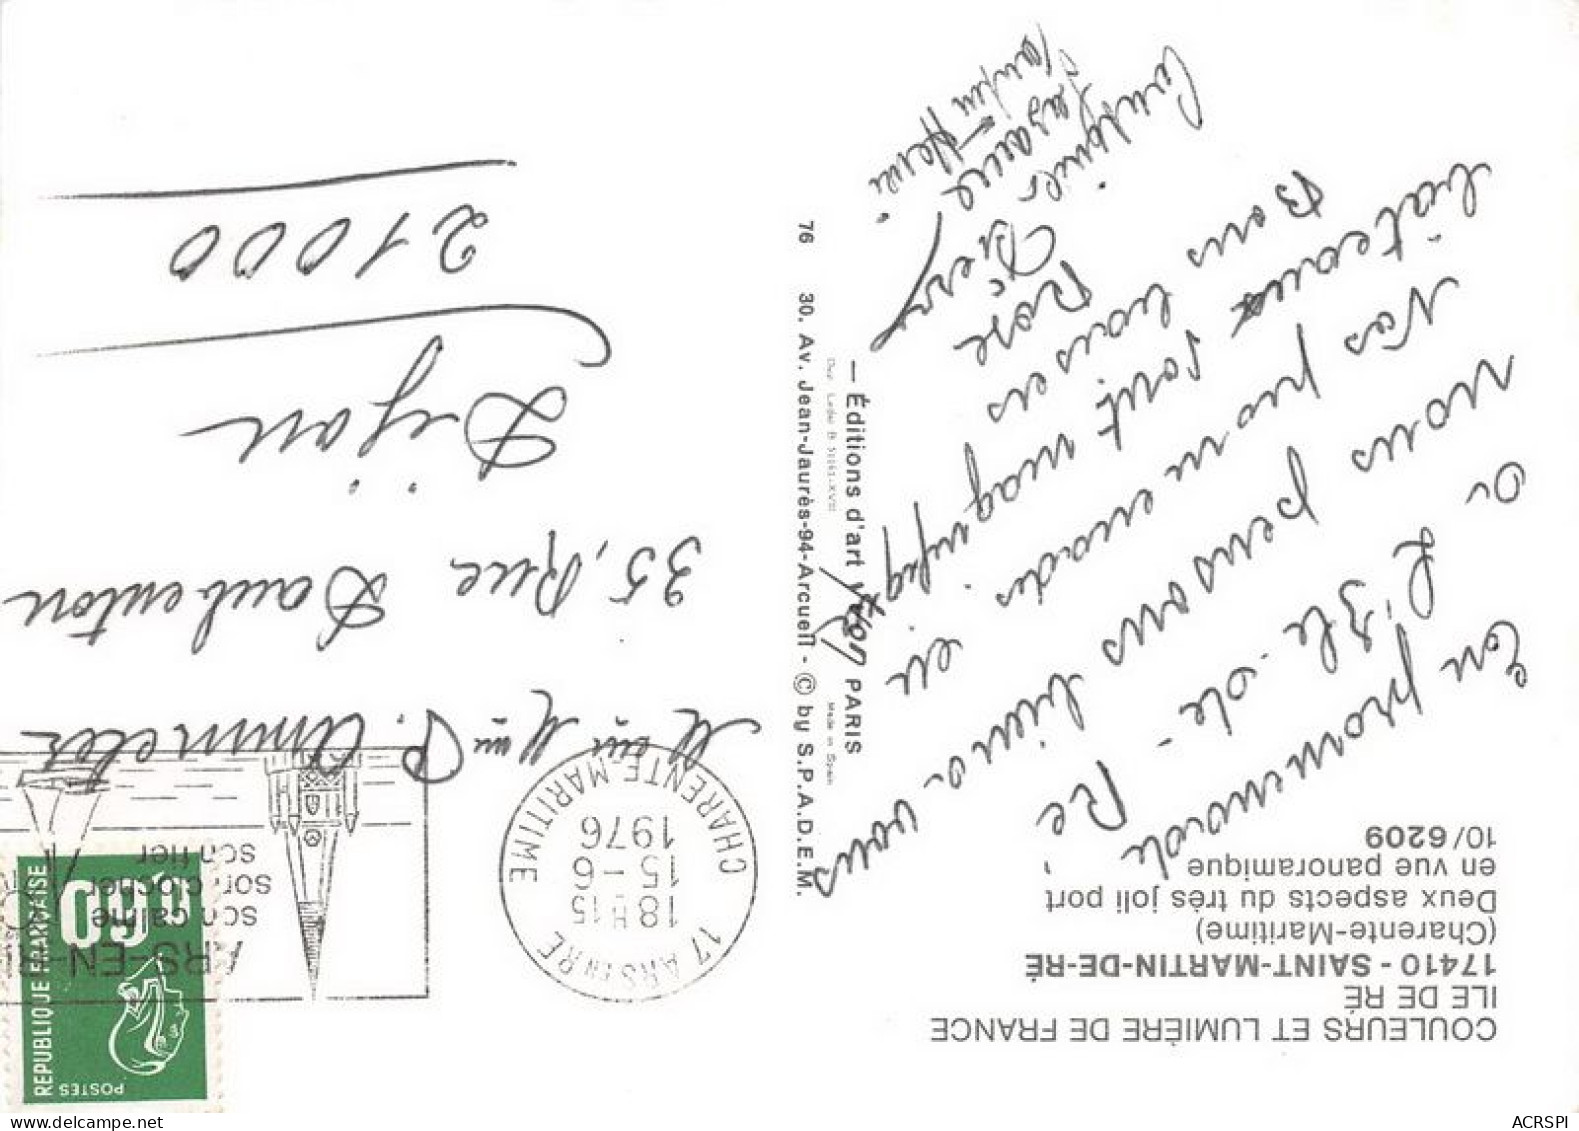 COULEURS ET LUMIÈRE DE FRANCE
ILE DE RÉ
17410 - SAINT-MARTIN-DE-RÉ
(Charente-Maritime)
Deux aspects du très joli port
en vue panoramique
10/6209
En promenade
à L'Isle-de-Ré
nous pensons bien à vous
Nos promenades en
bateaux sont magnifiques
Bons baisers
Rose
Pierre
— Éditions d'art YVON, PARIS
Made in Spain
76 30. Av. Jean-Jaurès-94-Arcueil - © by S.P.A.D.E.M.
POSTES
REPUBLIQUE FRANÇAISE
0,60
ARS-EN-RÉ
son calme
son clocher
son fier
17 ARS EN RE
18H15
15-6
1976
CHARENTE MARITIME
P. Ammeter
35, Rue Daubenton
Dijon
21000
ACRSPI